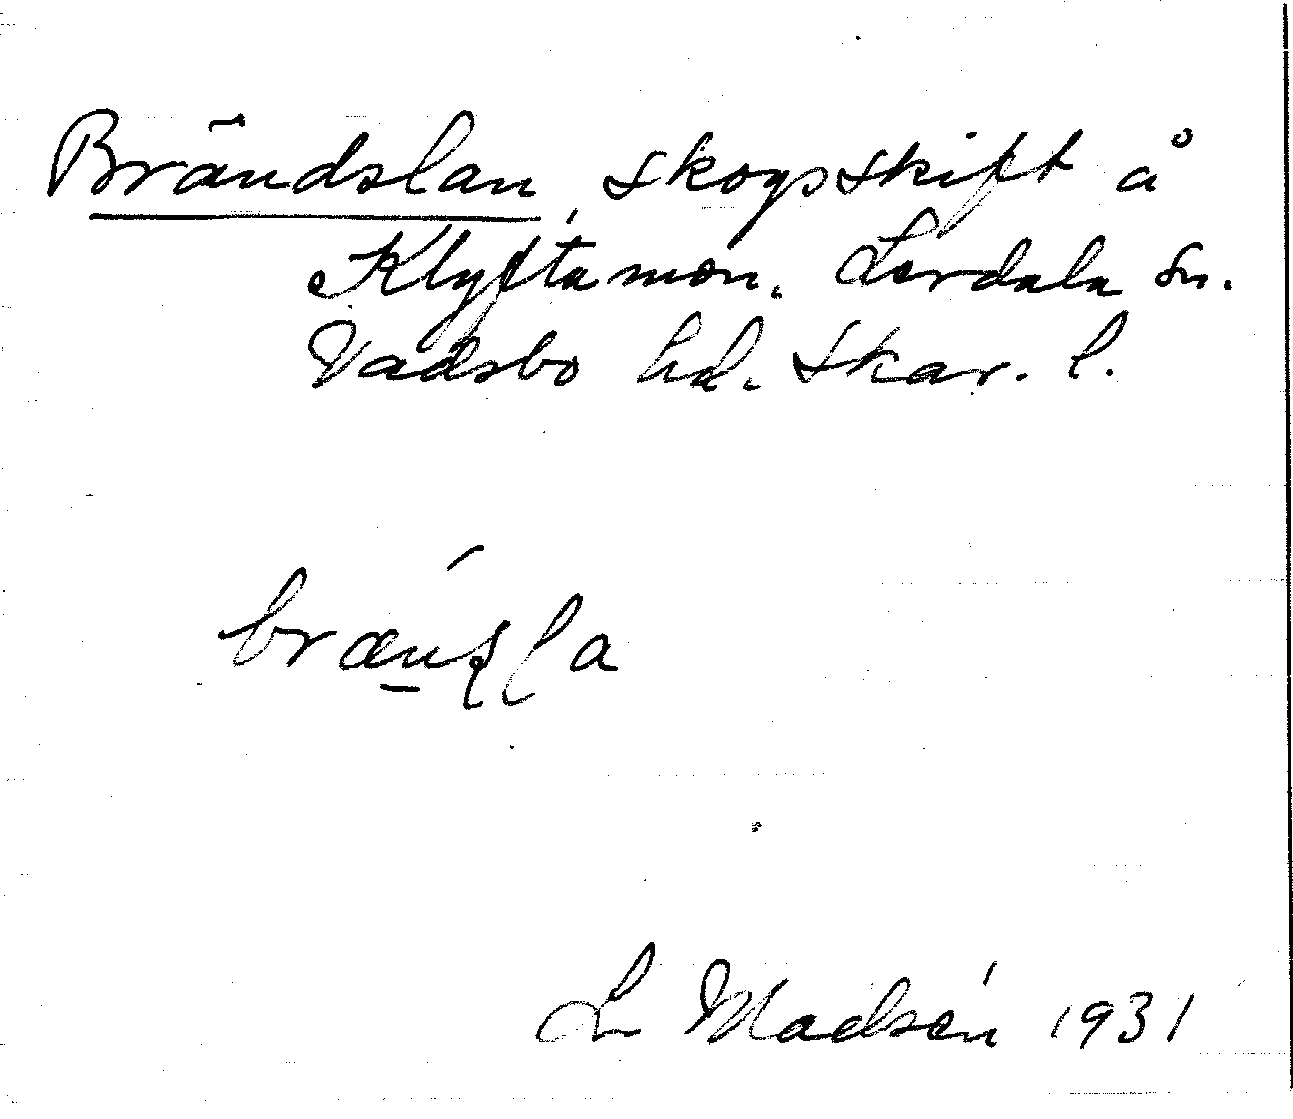 Brändslan, skogsskift å
Klyftamon. Lerdala sn.
Vadsbo hd. Skar. l.
brǽnsla
L Madsén 1931